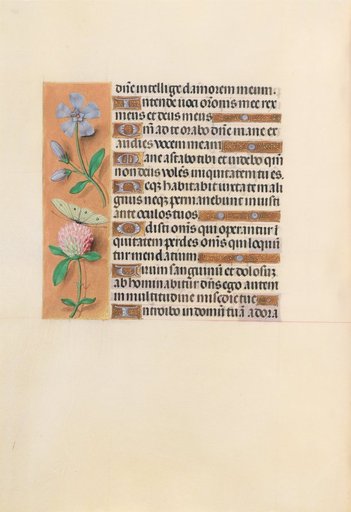 dñe intellige clamorem meum.
Intende uoci orōnis mee rex
meus et deus meus
Qm̄ ad te orabo dñe mane ex
audies vocem meam
Mane astabo tibi et videbo qm̄
non deus volēs iniquitatem tu es.
Neqȝ habitabit iuxta te mali
gnus neqȝ permanebunt iniusti
ante oculos tuos
Odisti om̄s qui operantur ī
iquitatem perdes om̄s qui loquū
tur mendatium
Uirum sanguinū et dolosuȝ
abhominabitur dñs ego autem
in multitudine misc̄die tue
Introibo in domū tuā adora